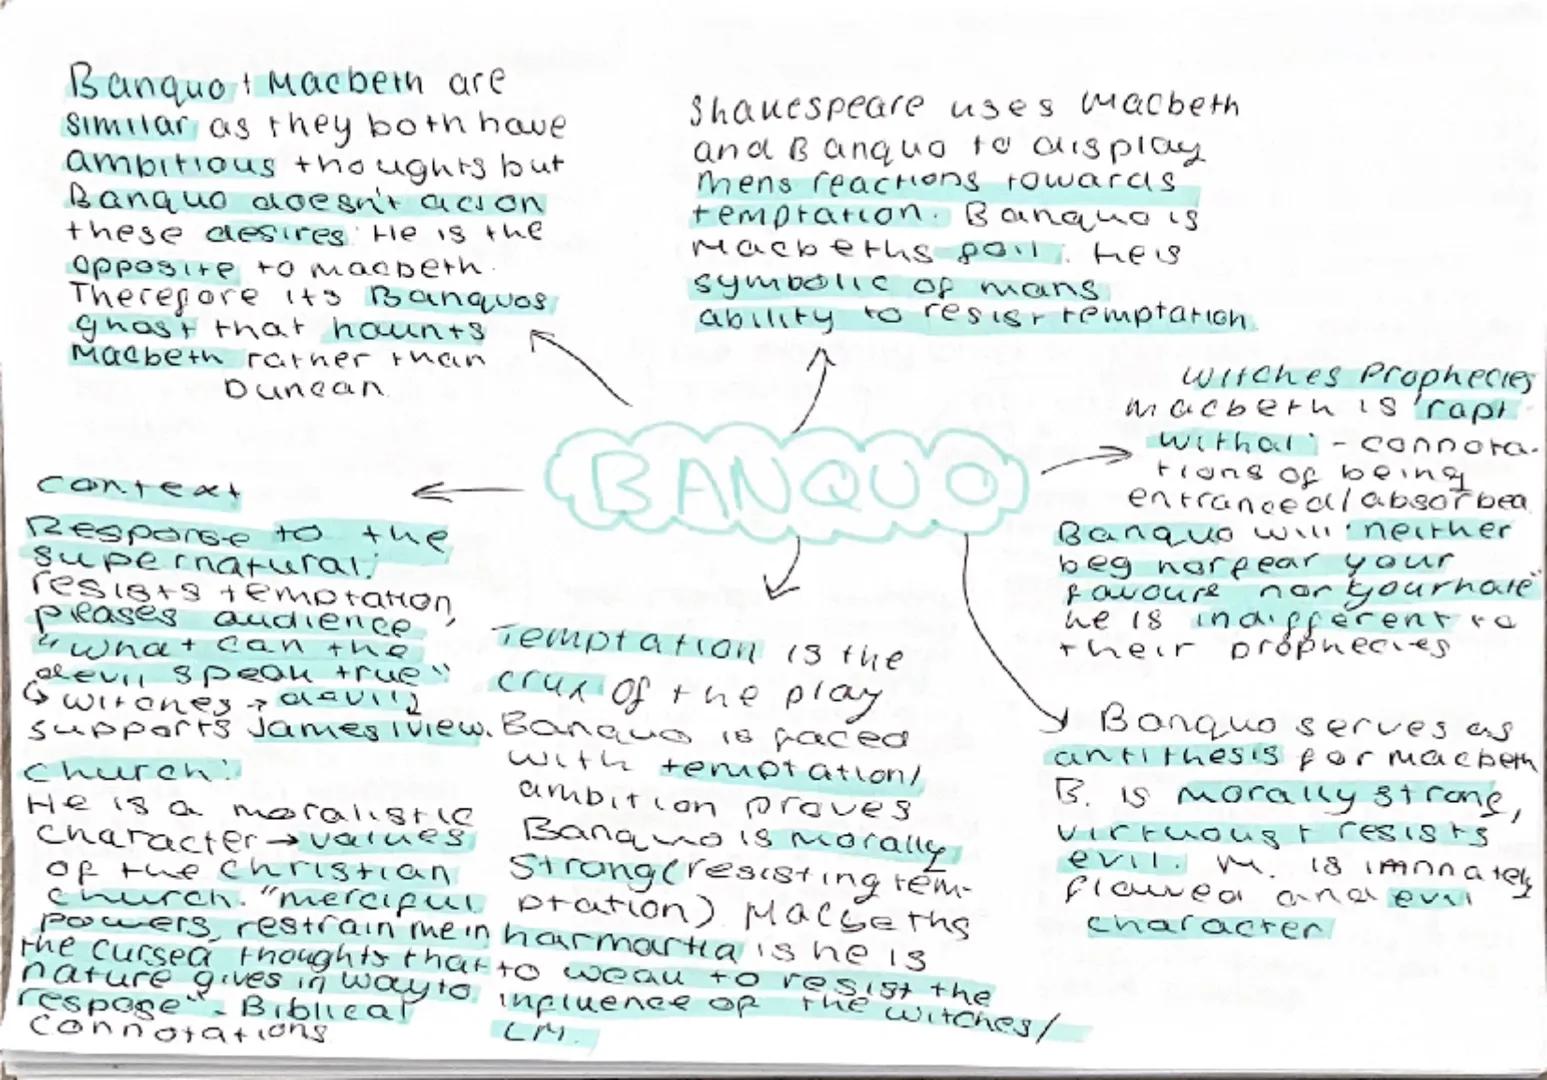 Banquo + Macbeth are
similar as they both have
ambitious thoughts but
Banquo doesn't act on
these desires. He is the
opposite to macbeth.
Therefore its Banquos
ghost that haunts
Macbeth rather than
Duncan.
Shakespeare uses Macbeth
and Banquo to display
mens reactions towards
temptation. Banquo is
Macbeths foil. He is
symbolic of mans
ability to resist temptation.
BANQUO
Witches Prophecies
Macbeth is 'rapt
withal' - connota-
tions of being
entranced/absorbed
Banquo will 'neither
beg nor fear your
favours nor your hate"
he is indifferent to
their prophecies
Context
Response to the
supernatural:
resists temptation,
pleases audience,
"what can the
devil speak true"
↳ witches → devils
supports James I view.
Church:
He is a moralistic
character → values
of the christian
church. "merciful
powers, restrain me in
the cursed thoughts that
nature gives in way to
respose" - Biblical
connotations
Temptation is the
crux of the play
Banquo is faced
with temptation/
ambition proves
Banquo is morally
strong (resisting tem-
ptation). Macbeths
harmartia is he is
to weak to resist the
influence of the witches/
LM.
Banquo serves as
antithesis for macbeth
B. is morally strong,
virtuous + resists
evil. M. is imnnately
flawed and evil
character